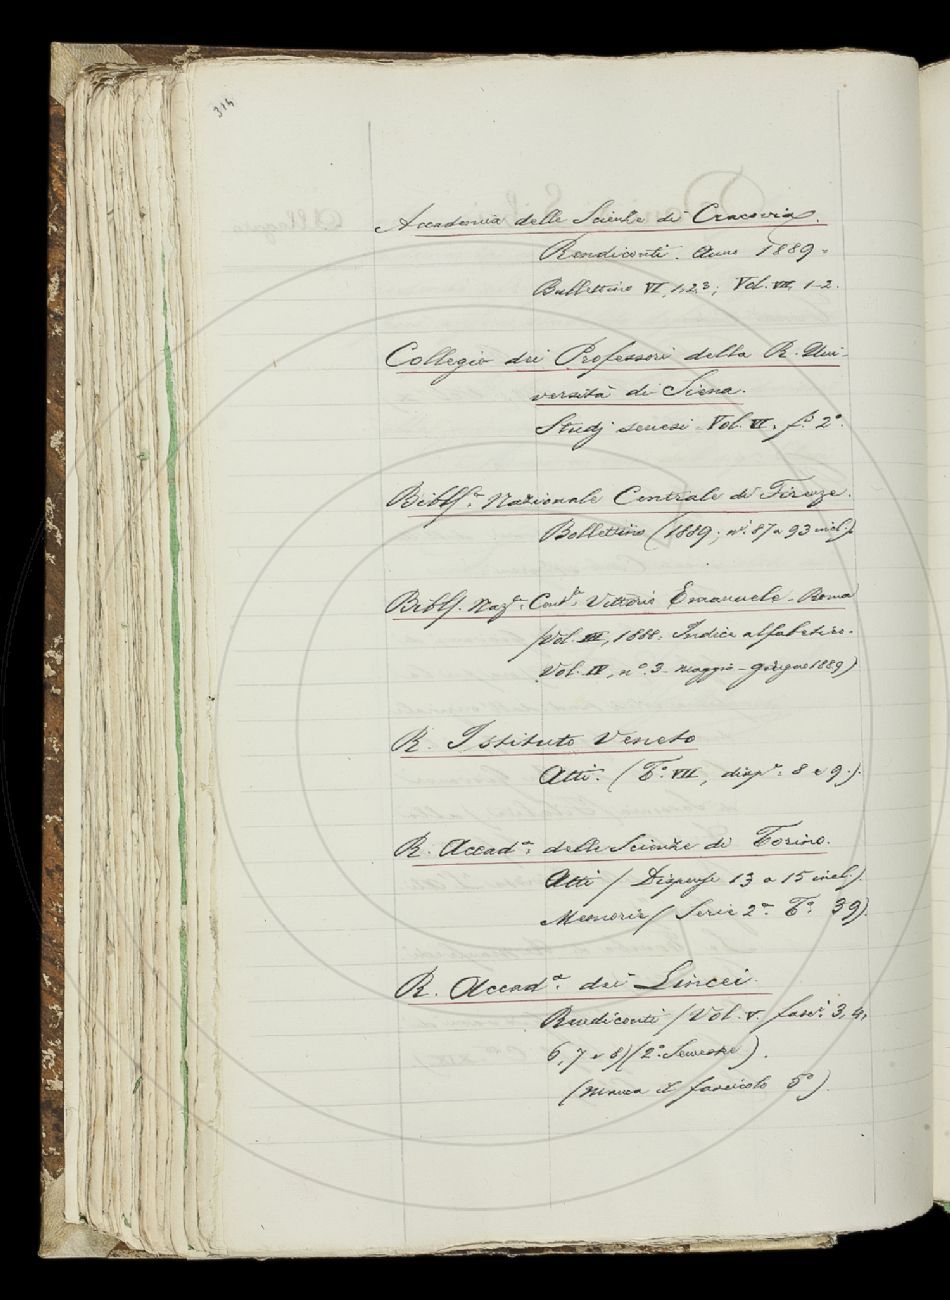 314
Accademia delle Scienze di Cracovia.
Rendiconti. Anno 1889.
Bullettino VI, 1,2,3; Vol. VII, 1-2.
Collegio dei Professori della R. Uni-
versità di Siena.
Studj senesi - Vol. VI, f.º 2º.
Bibl.ª Nazionale Centrale di Firenze.
Bollettino (1889; nⁱ 87 a 93 incl.)
Bibl. Naz.ª Cent.ª Vittorio Emanuele - Roma
(Vol. III, 1888. Indice alfabetico.
Vol. IV, nº. 3. maggio - giugno 1889)
R. Istituto Veneto
Atti. (Tº. VII, disp.ᵉ 8 e 9.).
R. Accad.ª delle Scienze di Torino.
Atti (Dispense 13 a 15 incl.).
Memorie (Serie 2ª. Tº. 39).
R. Accad.ª dei Lincei.
Rendiconti (Vol. V. fasc.ⁱ 3, 4,
6, 7 e 8) (2º. Semestre).
(Manca il fascicolo 5º).